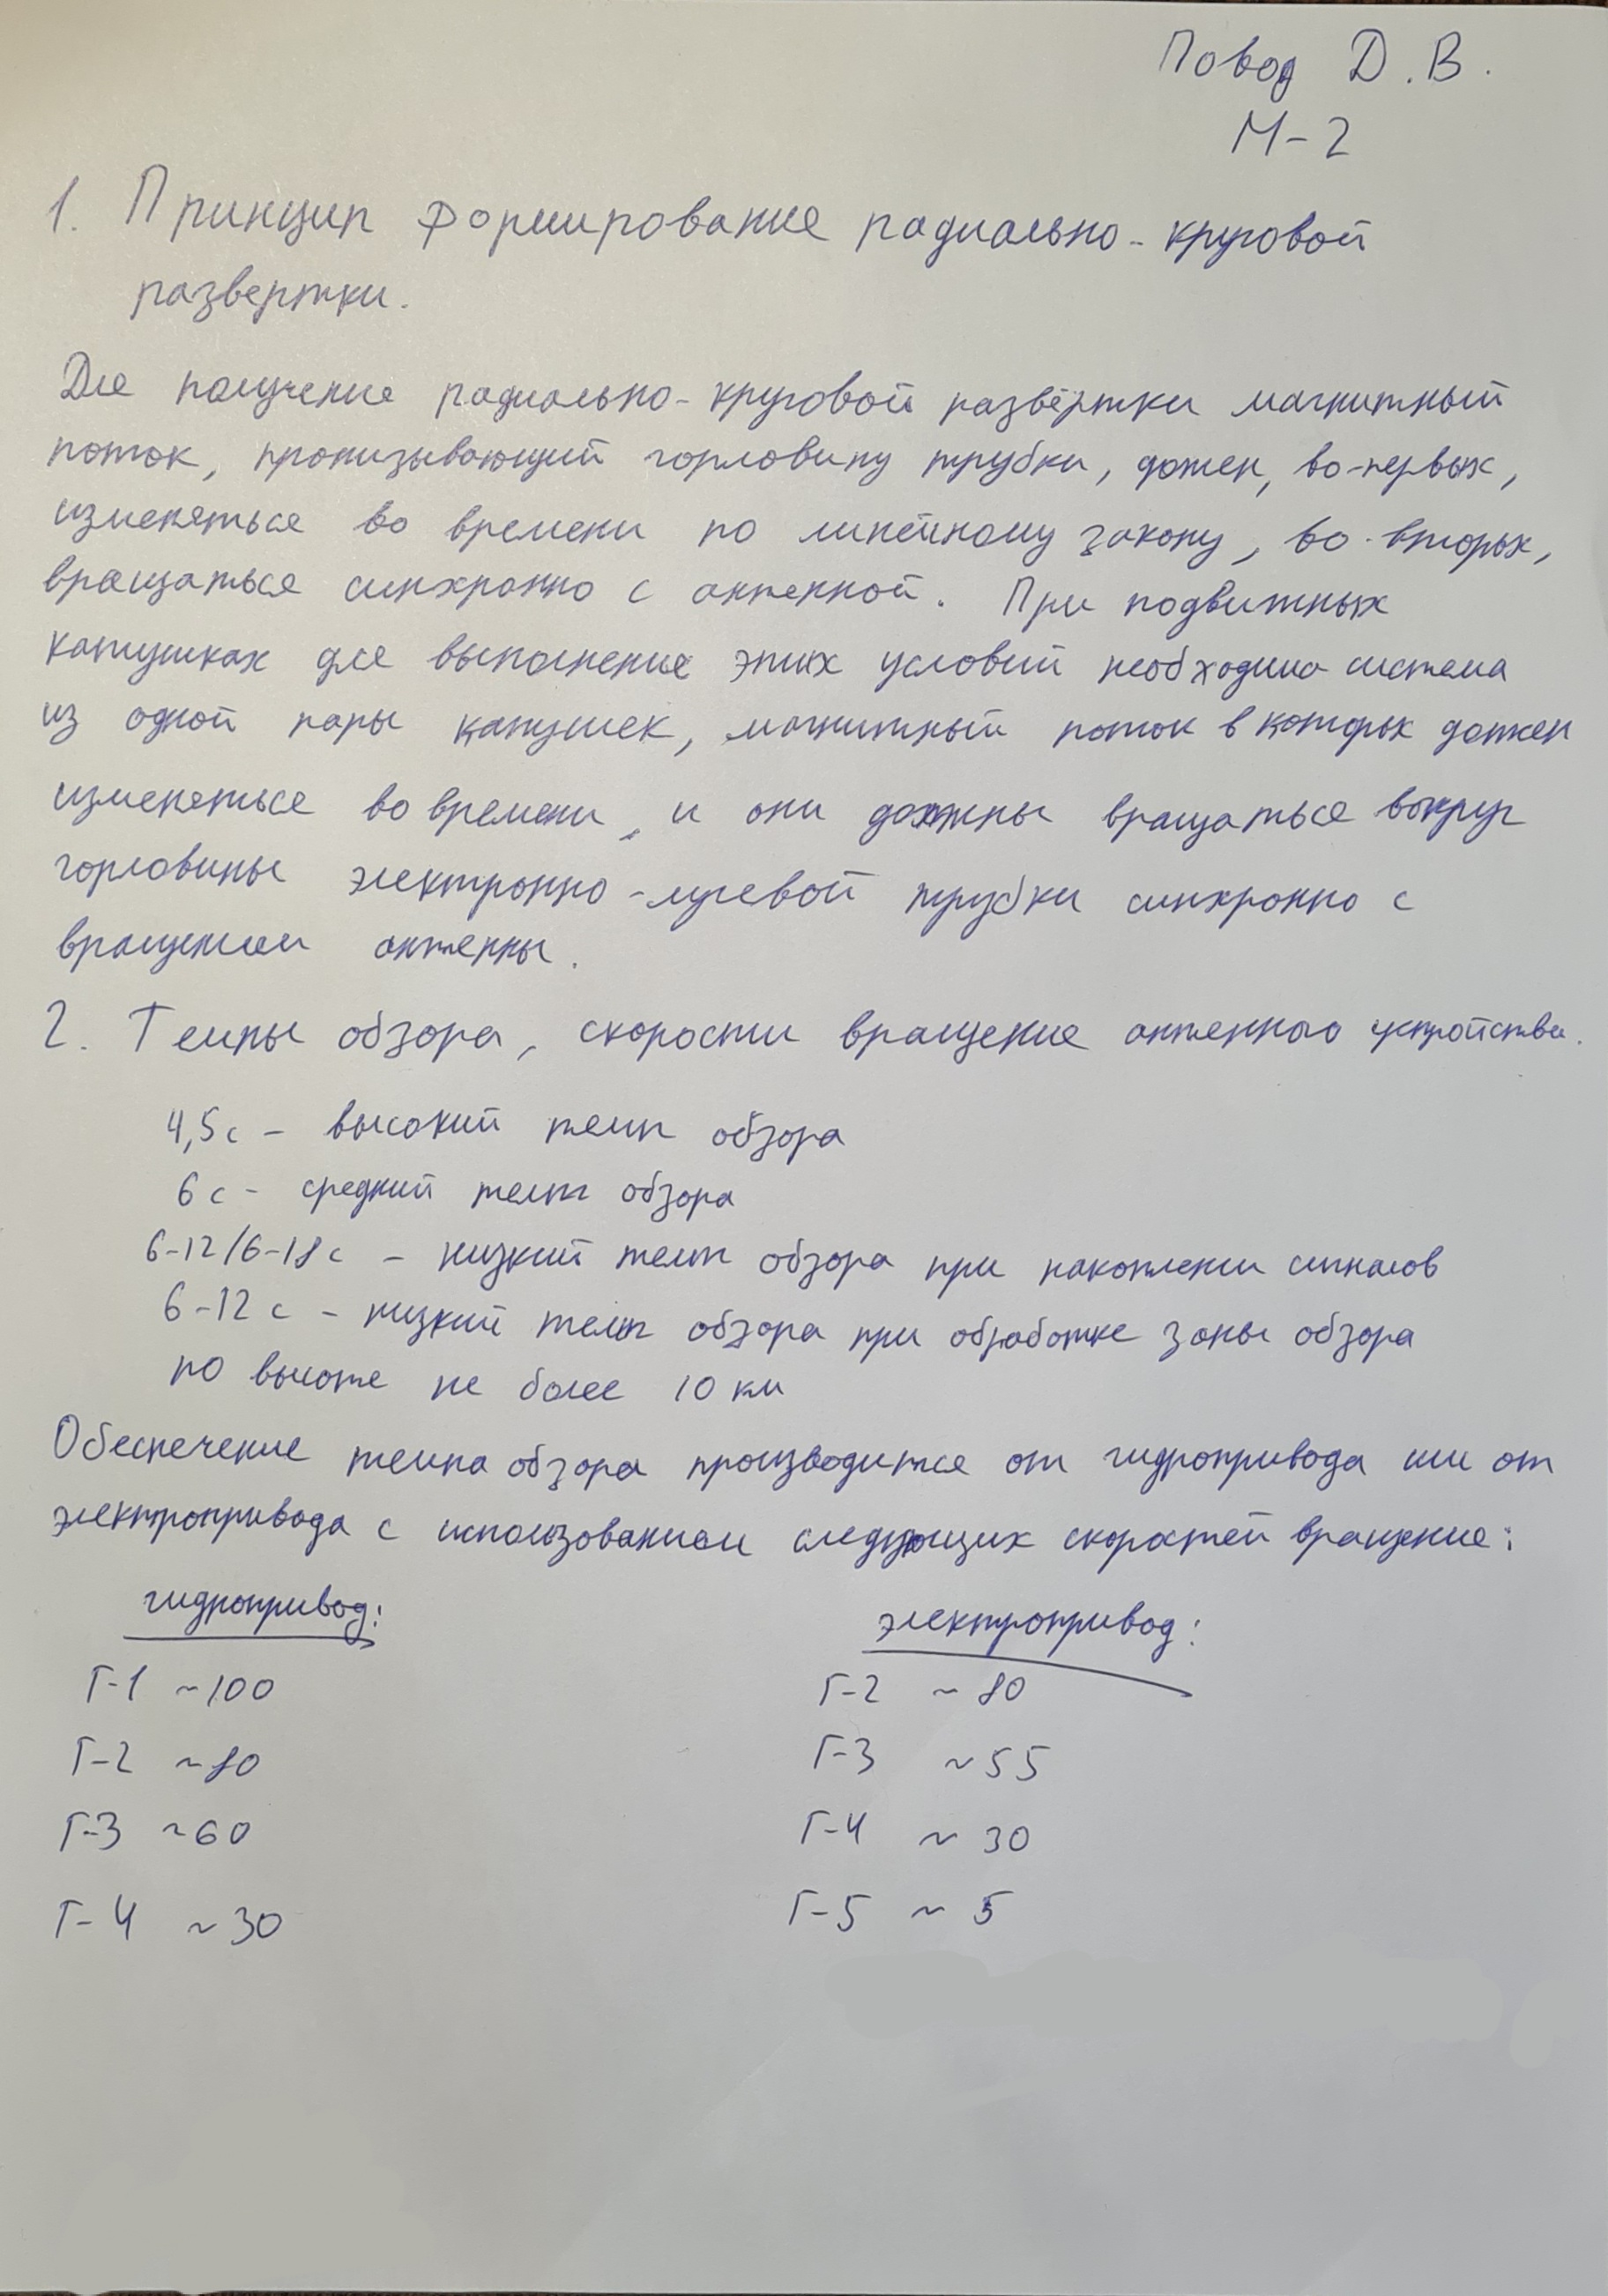 Повод Д.В.
М-2
1. Принцип формирования радиально-круговой
развертки.
Для получения радиально-круговой развёртки магнитный
поток, пронизывающий горловину трубки, должен, во-первых,
изменяться во времени по линейному закону, во-вторых,
вращаться синхронно с антенной. При подвижных
катушках для выполнения этих условий необходима система
из одной пары катушек, магнитный поток в которых должен
изменяться во времени, и они должны вращаться вокруг
горловины электронно-лучевой трубки синхронно с
вращением антенны.
2. Темпы обзора, скорости вращения антенного устройства.
4,5с - высокий темп обзора
6с - средний темп обзора
6-12/6-18с - низкий темп обзора при накоплении сигналов
6-12с - низкий темп обзора при обработке зоны обзора
по высоте не более 10 км
Обеспечение темпа обзора производится от гидропривода или от
электропривода с использованием следующих скоростей вращения:
гидропривод: электропривод:
Г-1 ~100 Г-2 ~ 80
Г-2 ~80 Г-3 ~55
Г-3 ~60 Г-4 ~ 30
Г-4 ~30 Г-5 ~ 5